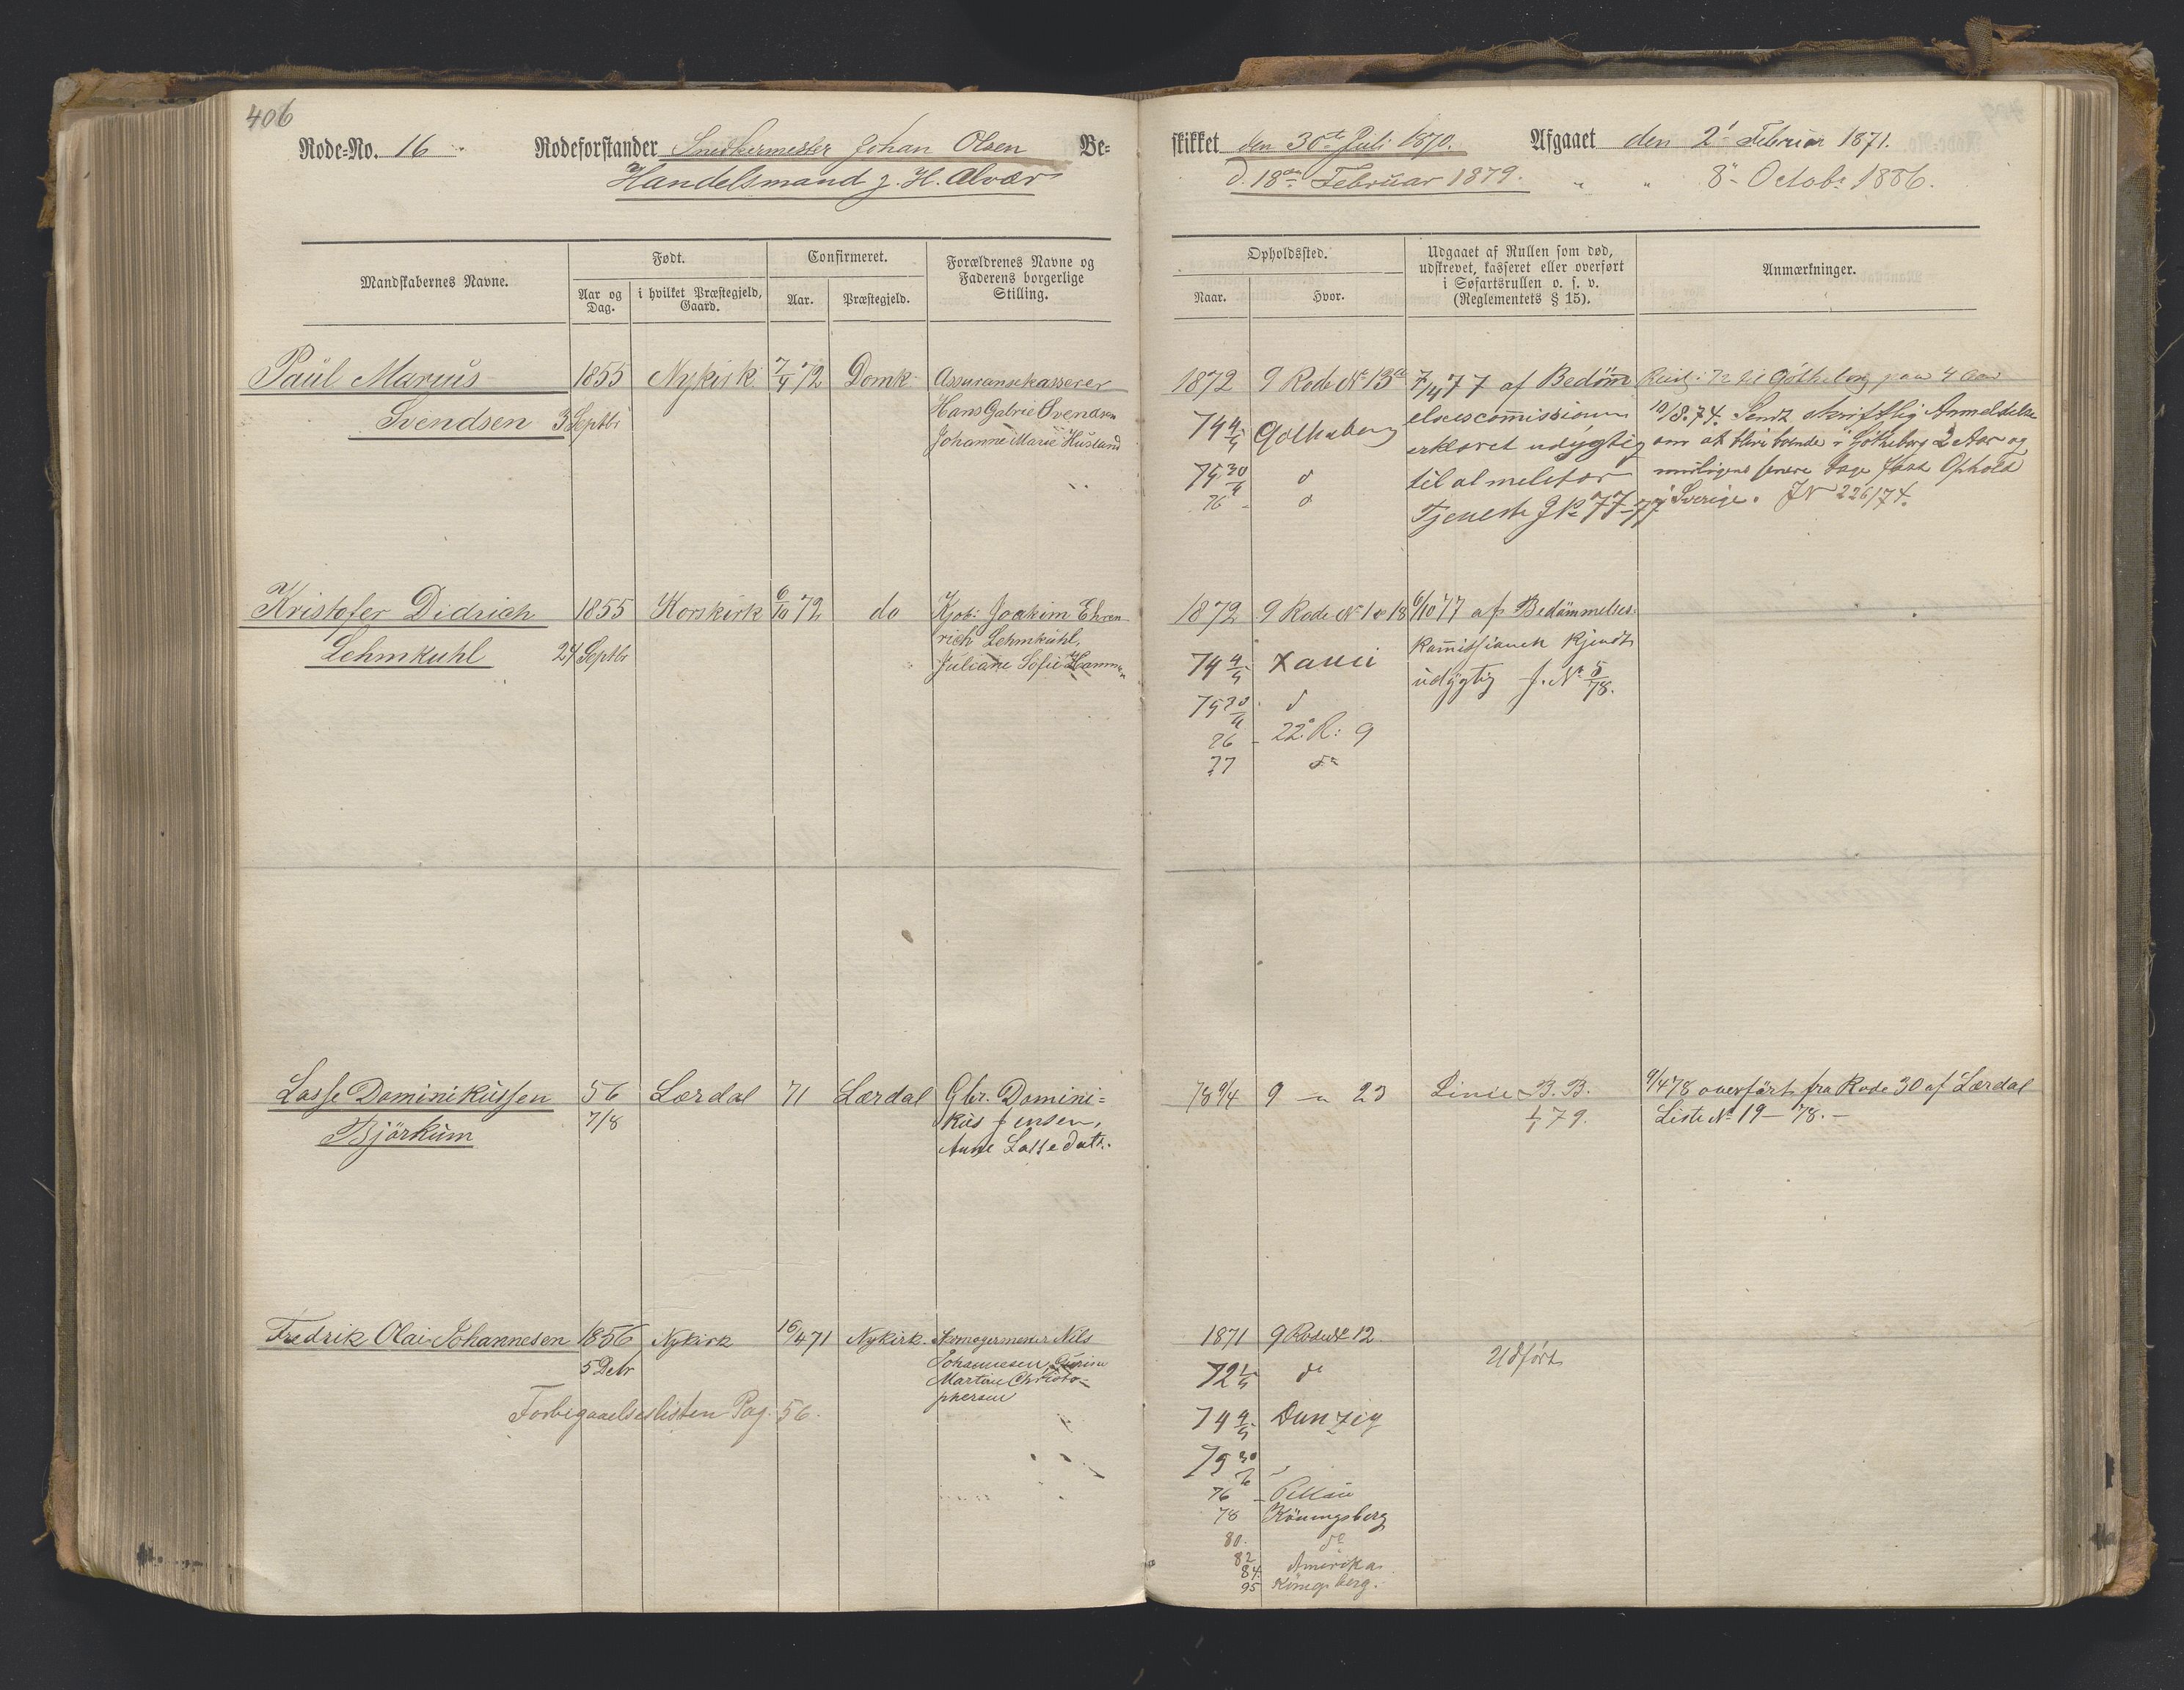 406
Rode=No. 16 Rodeforstander Snedkermester Johan Olsen Be=
Handelsmand J. H. Alvær
skikket den 30te Juli 1870. Afgaaet den 2' Februar 1871.
d. 18de Februar 1879. " " 8de Octobr 1886.
Mandskabernes Navne.
Født.
Aar og Dag.
i hvilket Præstegjeld, Gaard.
Confirmeret.
Aar.
Præstegjeld.
Forældrenes Navne og
Faderens borgerlige
Stilling.
Opholdssted.
Naar.
Hvor.
Udgaaet af Rullen som død,
udskrevet, kasseret eller overført
i Søfartsrullen o. s. v.
(Reglementets § 15).
Anmærkninger.
Paul Marius 1855 Nykirk 7/4 72 Domk Assuransekasserer
Svendsen 3 Septbr Hans Gabriel Svendsen
Johanne Marie Husland
1872 9 Rode No 13
74 4/5 Gothaborg
75 30/4 d
76 - d
7/4 77 af Bedöm
elsescommissionen
erklæret udygtig
til al meletær
Tjeneste
til Götheborg paa 4 Aar
10/8.74. Sendt skriftlig Anmeldelse
om at i Götheborg 2 Aar og
muligens senere tage fast Ophold
i Sverige. JN 226/74.
Kristofer Didrich 1855 Korskirk 6/10 72 do Kjøb: Joakim Ehren
Lehmkuhl 24 Septbr rich Lehmkuhl,
Juliane Sofie
1872 9 Rode No 1 & 18
74 4/5
75 30/4 d
76 - 22. R: 9
77 do
6/10 77 af Bedömmelses
kommissionen kjendt
udygtig J. No 5/78.
Lasse Dominikussen 56 Lærdal 71 Lærdal Gbr. Domini=
Björkum 7/8 kus Jensen,
Anne Lassedatr.
78 9/4 9 - 23
Linie B. B.
1/1 79.
9/4 78 overført fra Rode 30 af Lærdal
Liste No 19 - 78. -
Fredrik Olai Johannesen 1856 Nykirk 16/4 71 Nykirk Nils
5 Debr Johannesen,
Martine Christo=
phersen
Forbigaaelseslisten Pag. 56.
1871 9 Rode No 12
72 1/5 do
74 4/5 Danzig
75 30/4 "
76 - Pillau
78 Köningsberg
80. do
82 Amerika
84.
95 Königsberg.
Udført